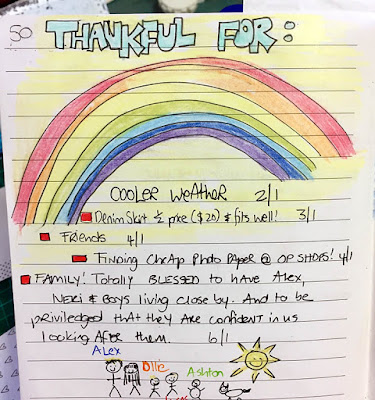 50
THANKFUL FOR:
COOLER WeATHER 2/1
Denim Skirt ½ price ($20) & fits well! 3/1
Friends 4/1
Finding CheAp Photo PAPER @ OP SHOPS! 4/1
FAMILY! Totally BLESSED to hAve Alex,
& Boys living close by. And to be
priviledged thAt they Are confident in us
looking After them. 6/1
ALEX
Ollie
Ashton